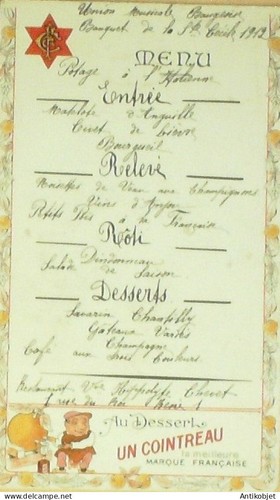 Union Musicale Baugeoise
Banquet de la Ste Cécile 1912
MENU
Potage à l'Italienne
Entrée
Matelote d'Anguille
Civet de lièvre
Bourgueil
Relevé
Noisettes de Veau aux Champignons
Vins d'Anjou
Petits Pois à la Française
Rôti
Dindonneau
Salade de Saison
Desserts
Savarin Chantilly
Gâteaux Variés
Champagne
Café aux trois Couleurs
Restaurant Vve Hippolyte
1 rue du
Au Dessert
UN COINTREAU
la meilleure
MARQUE FRANÇAISE
https://www.antikobjet.com
Antikobjet